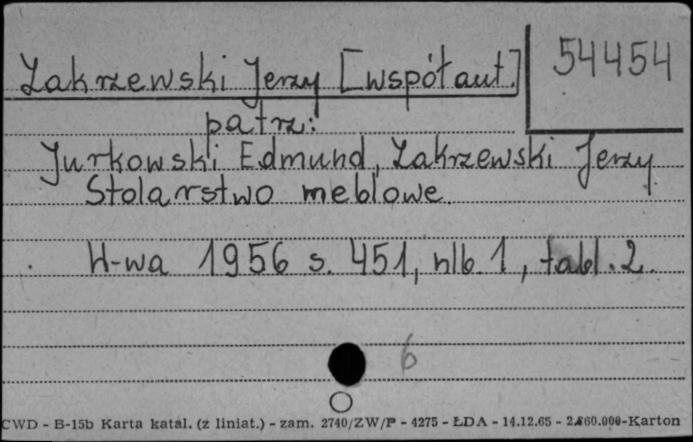 Zakrzewski Jerzy [współaut.]
54454
patrz:
Jurkowski Edmund, Zakrzewski Jerzy
Stolarstwo meblowe.
W-wa 1956 s. 451, nlb. 1, tabl. 2.
6
CWD - B-15b Karta katal. (z liniat.) - zam. 2740/ZW/P - 4275 - ŁDA - 14.12.65 - 2.860.000-Karton